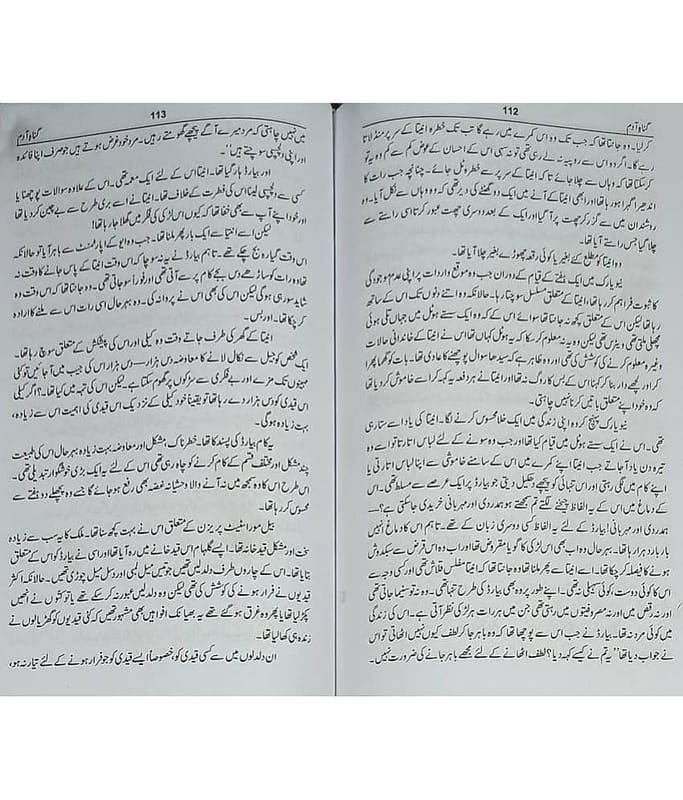 گناہ آدم
112
کر لیا۔ وہ جانتا تھا کہ جب تک وہ اس کمرے میں رہے گا تب تک خطرہ انیتا کے سر پر منڈلاتا
رہے گا۔ اگر وہ اس سے روپیہ نہ لے رہی تھی تو نہ سہی اس کے احسان کے عوض کم سے کم وہ یہ تو
کر سکتا تھا کہ وہاں سے چلا جائے تاکہ انیتا کے سر پر سے خطرہ ٹل جائے۔ چنانچہ جب رات کا
اندھیرا گہرا ہو رہا تھا اور ابھی انیتا کے آنے میں ایک دو گھنٹے کی دیر تھی کہ وہ وہاں سے نکل آیا۔ وہ
روشندان میں سے گزر کر چھت پر آ گیا اور ایک کے بعد دوسری چھت عبور کرتا اسی راستے سے
چلا گیا جس راستے آیا تھا۔
وہ انیتا کو مطلع کئے بغیر یا کوئی رقعہ چھوڑے بغیر چلا آیا تھا۔
نیو یارک میں ایک ہفتے کے قیام کے دوران جب وہ موقع واردات پر اپنی عدم موجودگی
کا ثبوت فراہم کر رہا تھا، انیتا کے متعلق مسلسل سوچتا رہا۔ حالانکہ وہ اتنے دنوں تک اس کے ساتھ
رہا تھا لیکن اس کے متعلق کچھ نہ جانتا تھا سوائے اس کے کہ وہ ایک سستے ہوٹل میں جہاں تلی ہوئی
مچھلی ملتی تھی ویٹرس تھی لیکن وہ یہ نہ معلوم کر سکا کہ یہ ہوٹل کہاں تھا اس نے انیتا کے خاندانی حالات
وغیرہ معلوم کرنے کی کوشش کی تھی اور وہ ظاہر ہے کہ سیدھا سوال پوچھنے کا عادی تھا۔ بات کو گھما پھرا
کر اور لچھے دار بنا کر کہنا اس کے بس کا روگ نہ تھا اور انیتا نے ہر دفعہ یہ کہہ کر اسے خاموش کر دیا تھا
کہ وہ خود اپنے متعلق باتیں کرنا نہیں چاہتی۔
نیو یارک پہنچ کر وہ اپنی زندگی میں ایک خلا محسوس کرنے لگا۔ انیتا کی یاد اسے ستا رہی
تھی۔ اس نے ایک سستے ہوٹل میں قیام کیا تھا اور جب وہ سونے کے لئے لباس اتارتا تو اسے وہ
تیرہ دن یاد آ جاتے جب انیتا اپنے کمرے میں اس کے سامنے خاموشی سے اپنا لباس اتارتی یا
اپنے کام میں لگی رہتی اور اس تنہائی کو پیچھے دھکیل دیتی جو بیارڈ پر ایک عرصے سے مسلط تھی۔ اس
کے دماغ میں اس کے یہ الفاظ چیخنے لگتے تم سمجھتے ہو ہمدردی اور مہربانی خریدی جا سکتی ہے؟۔۔
ہمدردی اور مہربانی! بیارڈ کے لئے یہ الفاظ کسی دوسری زبان کے تھے۔ تاہم اس کا دماغ نہیں
بار بار دہرا رہا تھا۔ بہرحال وہ اب بھی اس لڑکی کا گویا مقروض تھا اور اب وہ اس قرض سے سبکدوش
ہونے کا فیصلہ کر چکا تھا۔ اسے انیتا سے پھر ملنا تھا وہ جانتا تھا کہ انیتا مفلس قلاش تھی اور کسی وجہ سے
اس کا کوئی دوست، کوئی سہیلی نہ تھی۔ اپنے طور پر وہ بھی بیارڈ کی طرح تنہا تھی۔ وہ نہ تو سینما جاتی تھی
اور نہ رقص میں اور نہ ان مصروفیتوں میں رہتی تھی جن میں ہر رات ہر لڑکی نظر آتی ہے۔ اس کی زندگی
میں کوئی مرد نہ تھا۔ بیارڈ نے جب اس سے پوچھا تھا کہ وہ باہر جا کر لطف کیوں نہیں اٹھاتی تو اس
نے جواب دیا تھا ”یہ تم نے کیسے کہہ دیا؟ لطف اٹھانے کے لئے مجھے باہر جانے کی ضرورت نہیں۔
113
گناہ آدم
میں نہیں چاہتی کہ مرد میرے آگے پیچھے گھومتے رہیں۔ مرد خود غرض ہوتے ہیں جو صرف اپنا فائدہ
اور اپنی دلچسپی سوچتے ہیں“۔
اور بیارڈ ہار گیا۔ انیتا اس کے لئے ایک معمہ تھی۔ اس کے علاوہ سوالات پوچھنا یا
کسی سے دلچسپی لینا اس کی فطرت کے خلاف تھا۔ انیتا نے اسے بری طرح سے بے چین کر دیا تھا
اور خود اپنے آپ سے بھی خفا تھا کہ کیوں اس لڑکی کی فکر میں گھلا جا رہا تھا!
لیکن اسے انیتا سے ایک بار پھر ملنا تھا۔ جب وہ وایو کے اپارٹمنٹ سے باہر آیا تو حالانکہ
اس وقت گیارہ بج چکے تھے۔ تاہم بیارڈ نے یہ نہ سوچا کہ اس وقت انیتا کے پاس جانے کا وقت نہ
تھا وہ رات کو ساڑھے دس بجے کام پر سے آتی تھی اور فوراً سو جاتی تھی۔ وہ جانتا تھا کہ اس وقت وہ
شاید سو رہی ہو گی لیکن اس کی بھی اس نے پروا نہ کی۔ وہ بہرحال اسی رات اس سے ملنے کا ارادہ
کر چکا تھا۔ اور بس۔
انیتا کے گھر کی طرف جاتے وقت وہ کیلی اور اس کی پیشکش کے متعلق سوچ رہا تھا۔
ایک شخص کو جیل سے نکال لانے کا معاوضہ دس ہزار۔۔ دس ہزار اس کی جیب میں آ جائیں تو کئی
مہینوں تک مزے اور بے فکری سے سڑکوں پر گھوم سکتا ہے۔ لیکن اس کی تہہ میں کیا تھا؟ اگر کیلی
اس قیدی کو دس ہزار دے رہا تھا تو یقیناً خود کیلی کے نزدیک اس قیدی کی اہمیت اس سے زیادہ،
بہت زیادہ ہو گی۔
یہ کام بیارڈ کی پسند کا تھا۔ خطرناک، مشکل اور معاوضہ بہت زیادہ بہرحال اس کی طبیعت
چند مشکل اور مختلف قسم کے کام کرنے کو چاہ رہی تھی اس کے لئے یہ ایک بڑی خوشگوار تبدیلی تھی۔
اس طرح اس کا وہ سمجھ میں نہ آنے والا وحشیانہ غصہ بھی رفع ہو جائے گا جسے وہ پچھلے دو ہفتے سے
محسوس کر رہا تھا۔
بیل مور اسٹیٹ پریزن کے متعلق اس نے بہت کچھ سنا تھا۔ ملک کا یہ سب سے زیادہ
سخت اور مشکل قید خانہ تھا۔ ایسے گلہام اس قید خانے میں رہ آیا تھا اور اسی نے بیارڈ کو اس کے متعلق
بتایا تھا۔ اس کے چاروں طرف دلدلیں تھیں جو تیس میل لمبی اور دس میل چوڑی تھیں۔ حالانکہ اکثر
قیدیوں نے فرار ہونے کی کوشش کی تھی لیکن وہ دلدلیں عبور نہ کر سکے تھے یا تو کتوں نے انہیں
پکڑ لیا تھا یا پھر وہ غرق ہو گئے تھے یہ بھیانک افواہیں بھی مشہور تھیں کہ کئی قیدیوں کو گھڑیالوں نے
زندہ ہی کھا لیا تھا۔
ان دلدلوں میں سے کسی قیدی کو، خصوصاً ایسے قیدی کو جو فرار ہونے کے لئے تیار نہ ہو،